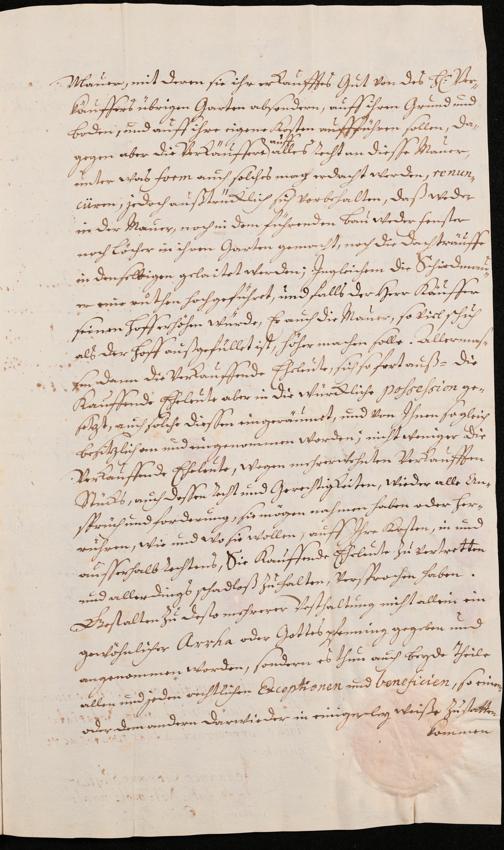 Mauer, mit deren sie ihr erkaufftes Gut von des H: Ver-
käuffers übrigen Garten absondern, auff ihren Grund und
boden, und auff ihre eigene Kosten aufführen sollen, da-
gegen aber die Verkäuffere auff alles Recht an diesse Mauer,
unter was form auch solches mag erdacht werden, renun-
ciiren; jedoch außtrücklich sich vorbehalten, daß weder
in der Mauer, noch in dem führenden bau weder fenster
noch löcher in ihren Garten gemacht, noch die Dachträuffe
in denselbigen geleitet werden; Ingleichem die Schiedmau-
er eine ruthen hochgeführet, und falls der Herr Käuffer
seinen Hoff erhöhen würde, Er auch die Mauer, so viel schuh
als der Hoff außgefüllt ist, höher machen solle. Allermas-
sen dann die Verkauffende Eheleute, sich so fort auß- die
Kauffende Eheleute aber in die würckliche possession ge-
setzt, auch solche diessen eingeräumet, und von Ihnen sogleich
besitzlich an und eingenommen worden; nicht weniger die
Verkauffende Eheleute, wegen mehrerwehnten Verkaufften
Stücks, auch dessen Recht und Gerechtigkeiten, wieder alle An-
spruch und forderung, sie mögen nahmen haben oder her-
rühren, wie und wo sie wollen, auff Ihre Kosten, in und
ausserhalb Rechtens, Die Kauffende Eheleute zu vertretten
und allerdings schadloß zu halten, versprochen haben.
Gestalten zu desto mehrerer Vesthaltung nicht allein ein
gewöhnlicher Arrha oder Gottespfenning gegeben und
angenommen worden, sondern es thun auch beyde Theile
allen und jeden rechtlichen Exceptionen und beneficien, so einem
oder dem andern darwieder in einigerley weiße zu statten
kommen